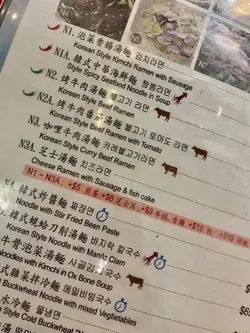 N1. 泡菜香腸湯麵 김치라면
Korean Style Kimchi Ramen with Sausage
N1A. 韓式中華海鮮麵 짬뽕라면
Style Spicy Seafood Noodle in Soup
N2. 烤牛肉湯麵 불고기 라면
Korean Style Beef Ramen
N2A. 烤牛肉番茄湯麵 불고기 토마토 라면
Korean Style Beef Ramen with Tomato
N3. 咖喱牛肉湯麵 카레불고기라면
Korean Style Curry Beef Ramen
N3A. 芝士湯麵 치즈라면
Cheese Ramen with Sausage & fish cake
N1 - N3A, +$5 煎蛋, +$6 芝士片, +$8 年糕, +$10
韓式炸醬麵 짜장면
Noodle with Stir Fried Been Paste
韓式蜆蛤刀削湯麵 바지락 칼국수
Korean Style Noodle with Manila Clam
牛骨泡菜湯麵 사골김치칼국수
Noodles with Kimchi in Ox Bone Soup
式雜菜拌冷麵 메밀비빔국수
Buckwheat Noodle with mixed Vegletables
水冷麵 물냉면
Style Cold Buckwheat